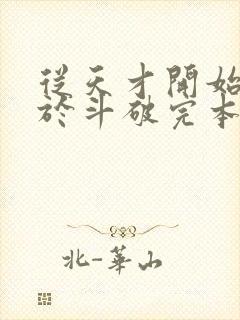 從天才開始
於斗破完本
北-華山